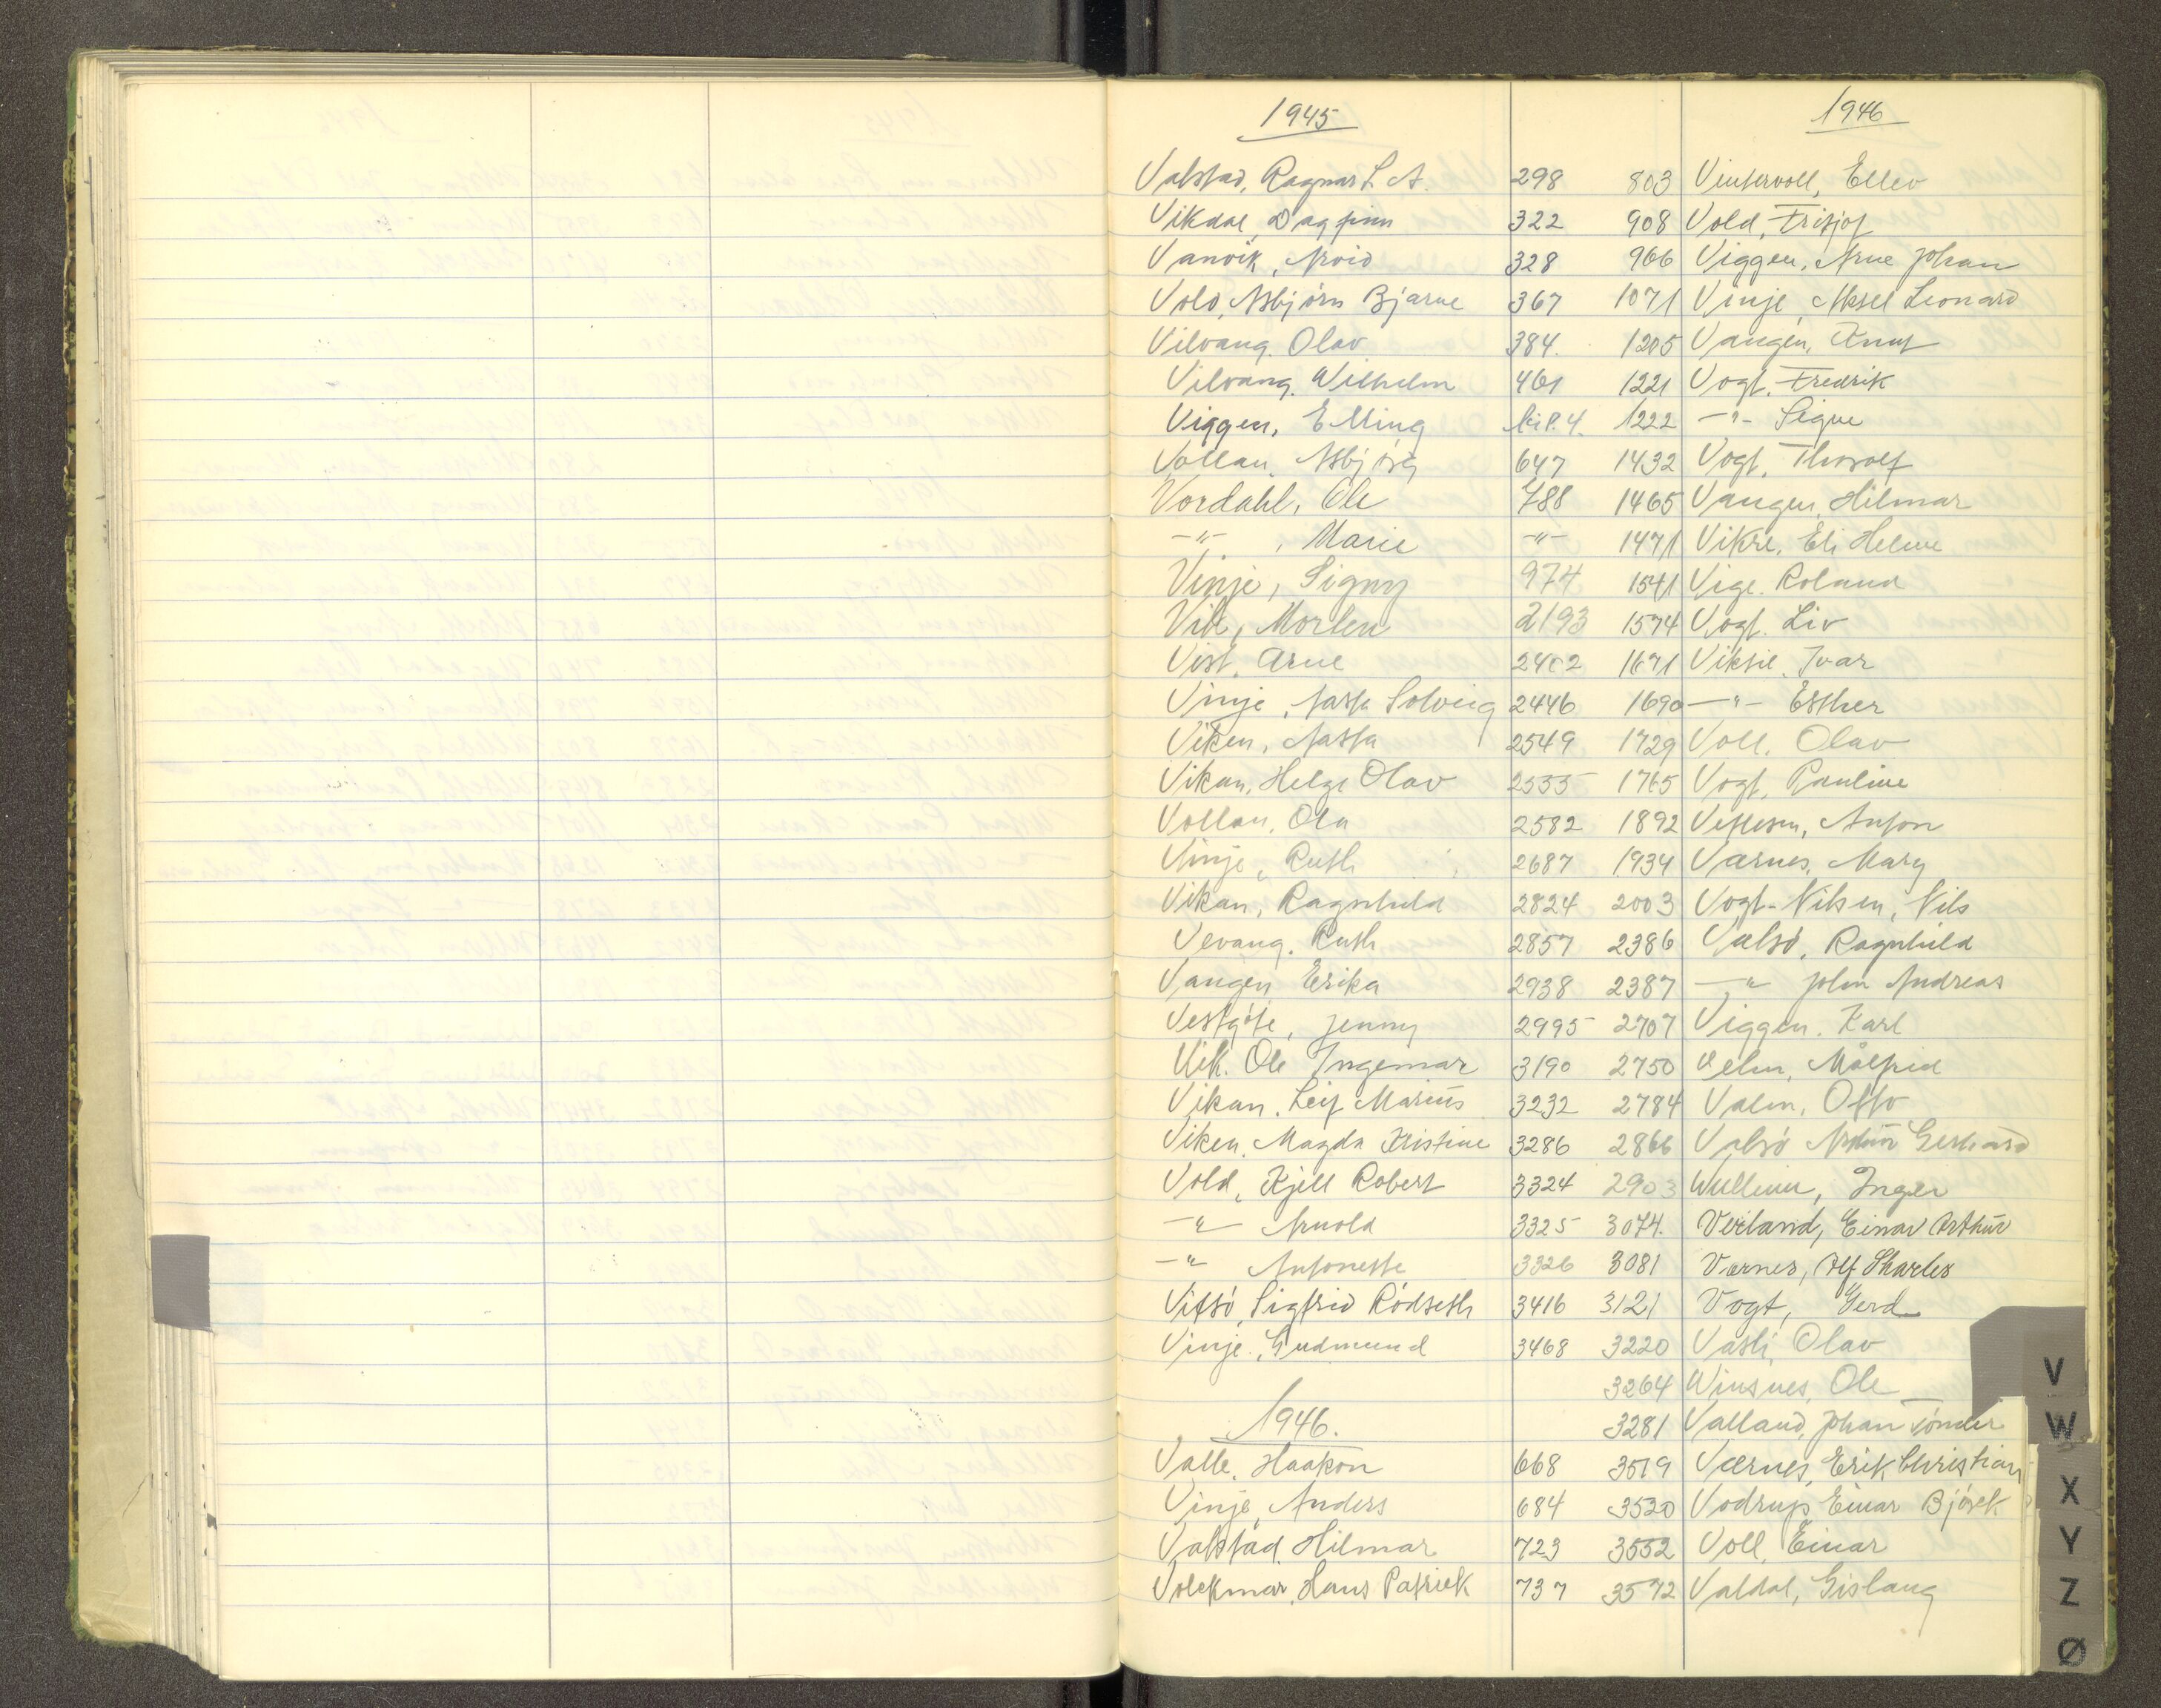 1945
Valstad, Ragnar L. A. 298
Vikdal, Dagfinn 322
Vanvik, Arvid 328
Vold, Asbjørn Bjarne 367
Vilvang. Olav 384.
Vilvang. Wilhelm 461
Viggen, Elling 4.
Vollan, Asbjørg 647
Vordahl, Ole 788
-"- , Marie -"-
Vinje, Signy 974
Vik, Morten 2193
Vist. Arne 2402
Vinje, Aasta Solveig 2446
Viken, Aasta 2549
Vikan, Helge Olav 2555
Vollan, Ola 2582
Vinje, Ruth 2687
Vikan, Ragnhild 2824
Vevang. Ruth 2857
Vangen Erika 2938
Vestgöte, Jenny 2995
Vik. Ole Ingemar 3190
Vikan. Leif Marius 3232
Viken. Magda Kristine 3286
Vold, Kjell Robert 3324
-"- Arnold 3325
-"- Antonette 3326
Vitsö, Sigfrid Rödseth 3416
Vinje. Gudmund 3468
1946.
Valle. Haakon 668
Vinje, Anders 684
Valstad, Hilmar 723
Volckmar, Hans Patrick 737
1946
803 Vintervoll, Ellev
908 Vold, Fritjof
966 Viggen, Arne Johan
1071 Vinje, Aksel Leonard
1205 Vangen, Knut
1221 Vogt, Fredrik
1222 -"- Signe
1432 Vogt, Thorolf
1465 Vangen, Hilmar
1471 Vikre, Eli Helene
1541 Vige. Roland
1574 Vogt. Liv
1671 Ivar
1690 -"- Esther
1729 Voll. Olav
1765 Vogt, Pauline
1892 Anton
1934 Værnes, Mary
2003 Vogt-Nilsen, Nils
2386 Valsö, Ragnhild
2387 -"- John Andreas
2707 Viggen. Karl
2750 Målfrid
2784 Valm, Otto
2866 Valsö Gerhard
2903 Wullum, Inger
3074. Verland, Einar Arthur
3081 Værnes, Alf Charles
3121 Vogt, Gerd
3220 Vasli, Olav
3264 Winsnes, Ole
3281 Valland, Johan Tönder
3519 Værnes, Erik Christian
3530 Vodrup, Einar Bjørck
3552 Voll, Einar
3572 Valdal, Gislaug
V
W
X
Y
Z
Ø